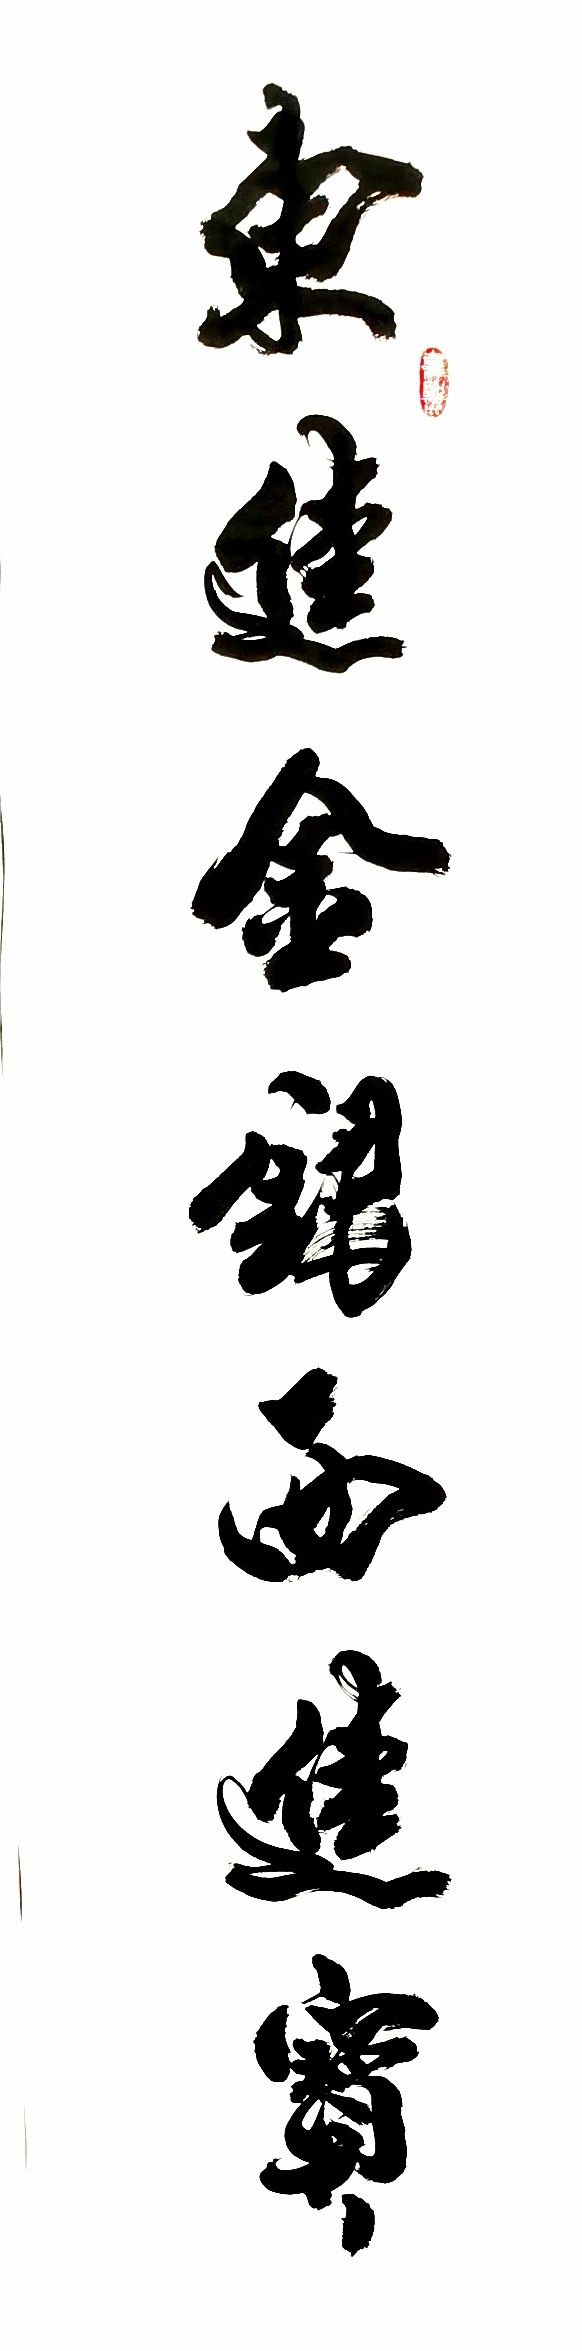 東進金銀西進寶